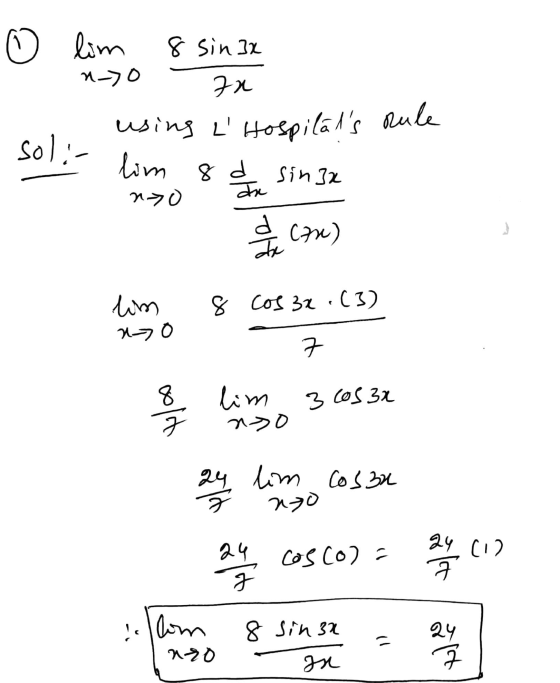 ① lim x→0 8 sin 3x / 7x
using L' Hospital's Rule
Sol:-
lim x→0 8 d/dx sin 3x / d/dx (7x)
lim x→0 8 cos 3x . (3) / 7
8/7 lim x→0 3 cos 3x
24/7 lim x→0 cos 3x
24/7 cos (0) = 24/7 (1)
∴ lim x→0 8 sin 3x / 7x = 24/7